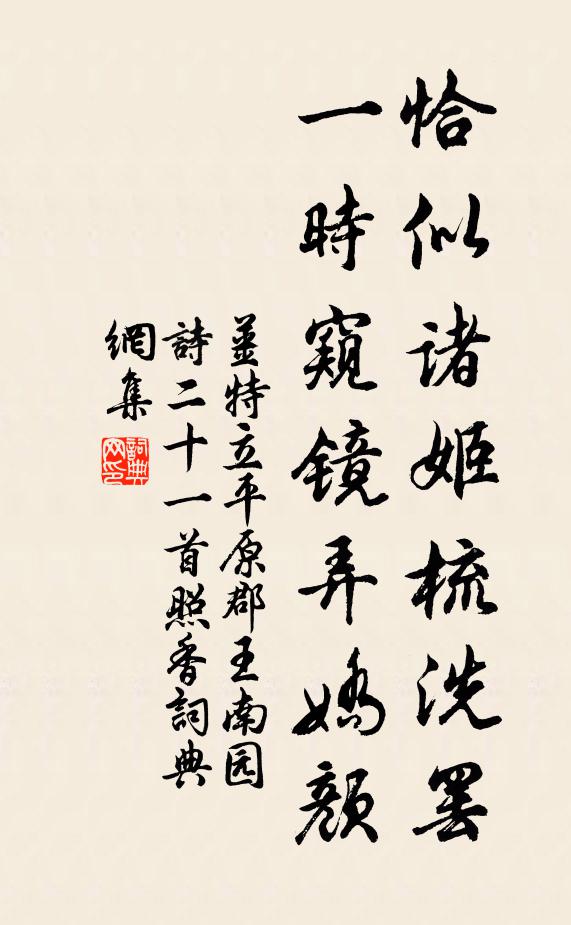 恰似诸姬梳洗罢
一時窺镜弄嬌顏
姜特立平原郡王南园
詩二十一首照香詞典
網集
詞典网印